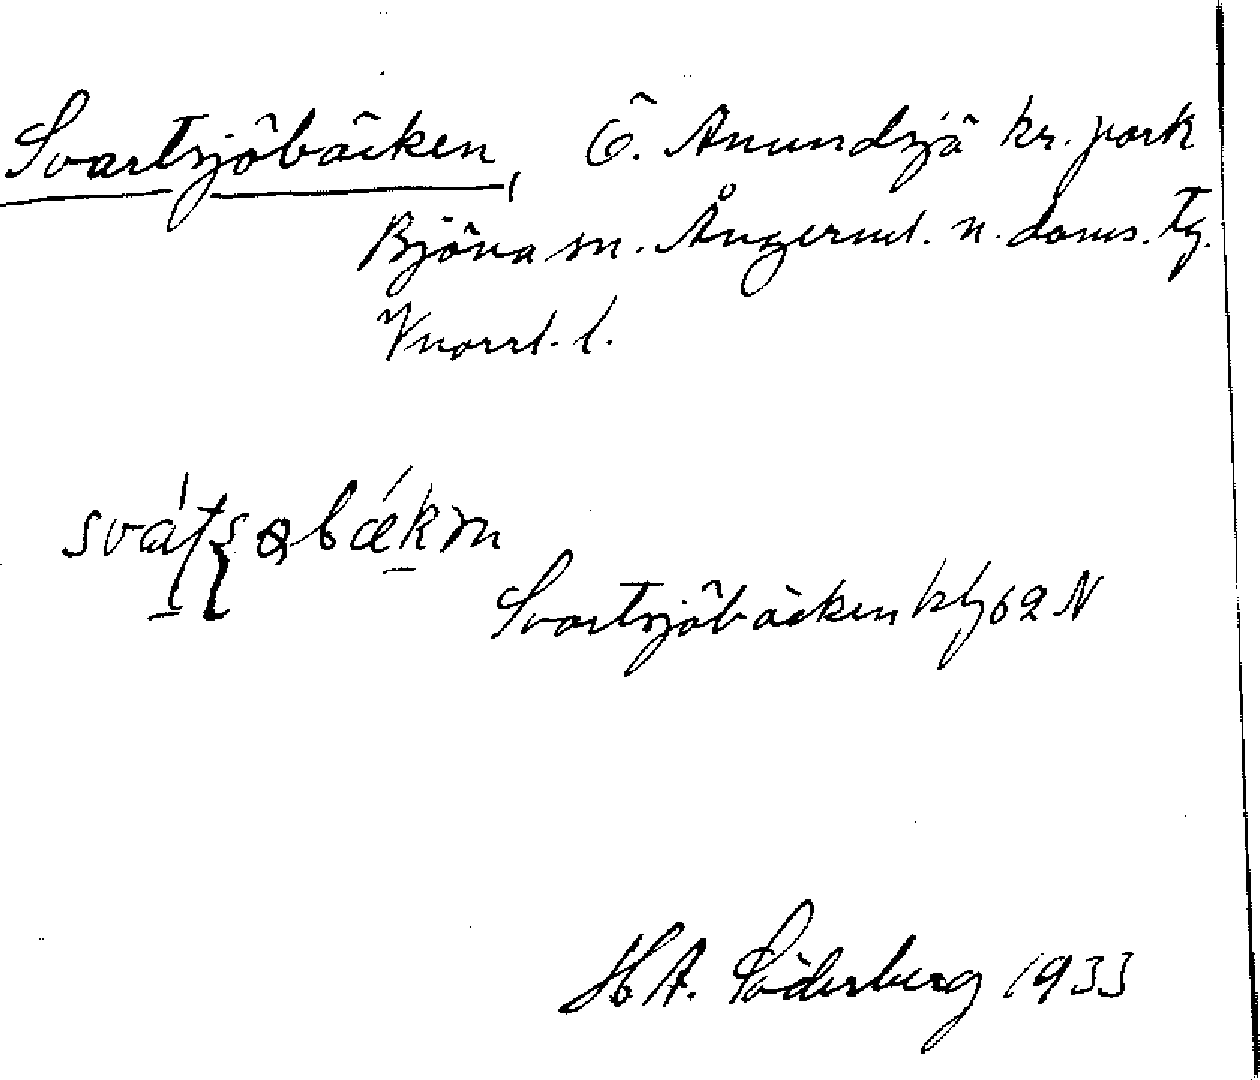 Svartsjöbäcken, Ö. Anundsjö kr. park
Björna sn. Ångerml. n. doms. tg.
Vnorrl. l.
Svartsjöbäcken kbl 62 N
H A. Söderberg 1933